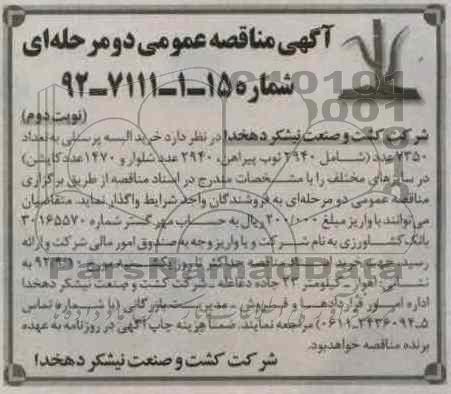 آگهی مناقصه عمومی دو مرحله‌ای
شماره ۱۵-۱-۷۱۱۱-۹۲
(نوبت دوم)
شرکت کشت و صنعت نیشکر دهخدا در نظر دارد خرید البسه پرسنلی به تعداد
۷۳۵۰ عدد (شامل ۲۹۴۰ ثوب پیراهن، ۲۹۴۰ عدد شلوار و ۱۴۷۰ عدد کاپشن)
در سایزهای مختلف را با مشخصات مندرج در اسناد مناقصه از طریق برگزاری
مناقصه عمومی دو مرحله‌ای به فروشندگان واجد شرایط واگذار نماید. متقاضیان
می‌توانند با واریز مبلغ ۲۰۰/۰۰۰ ریال به حساب مهر گستر شماره ۳۰۱۶۵۵۷۰
بانک کشاورزی به نام شرکت و یا واریز وجه به صندوق امور مالی شرکت و ارائه
رسید، جهت خرید اسناد مناقصه حداکثر تا روز به
نشانی: اهواز - کیلومتر ۲۳ جاده دغاغله - شرکت کشت و صنعت نیشکر دهخدا
اداره امور قراردادها و فروش - مدیریت بازرگانی (با شماره تماس
۵-۲۴۳۶۰۹۴-۰۶۱۱) مراجعه نمایند. ضمناً هزینه چاپ آگهی در روزنامه به عهده
برنده مناقصه خواهد بود.
شرکت کشت و صنعت نیشکر دهخدا
ParsNamadData